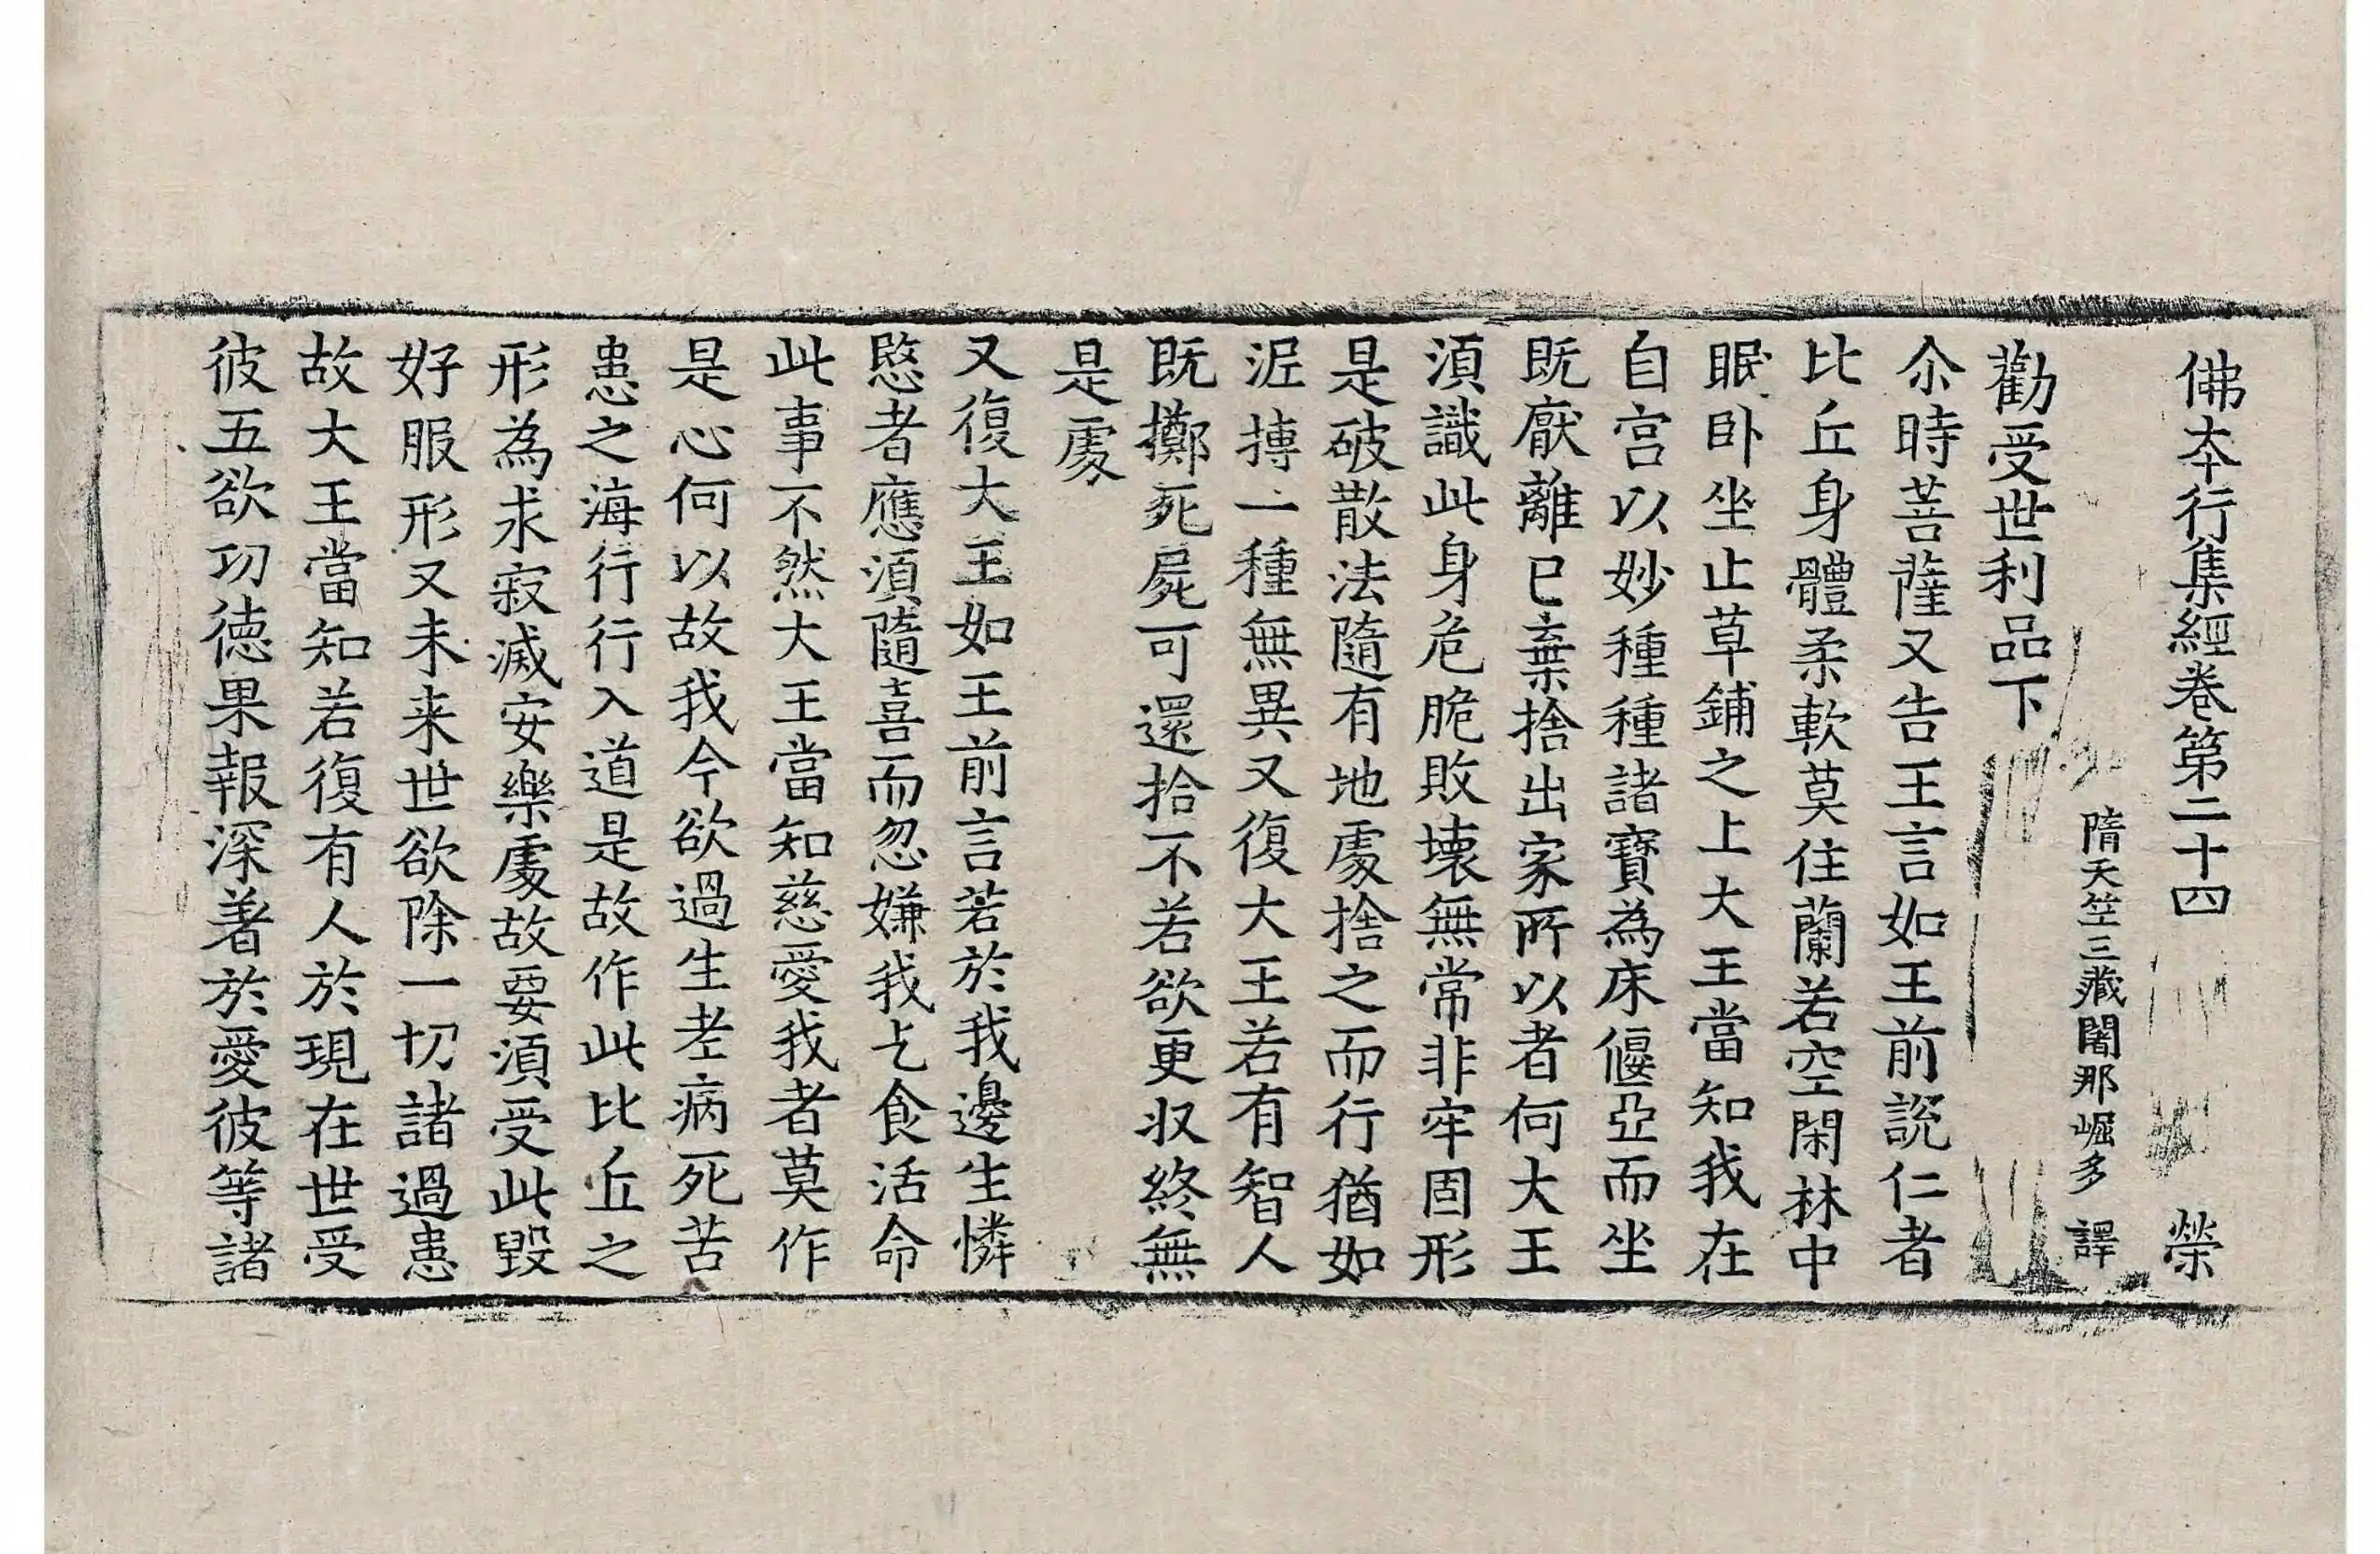 佛本行集經卷第二十四 榮
隋天竺三藏闍那崛多 譯
勸受世利品下
尒時菩薩又告王言如王前說仁者
比丘身體柔軟莫住蘭若空閑林中
眠卧坐止草鋪之上大王當知我在
自宫以妙種種諸寶為床偃亞而坐
既猒離已棄捨出家所以者何大王
湏識此身危脆敗壞無常非牢固形
是破散法隨有地處捨之而行猶如
泥摶一種無異又復大王若有智人
既擲死屍可還拾不若欲更収終無
是處
又復大王如王前言若於我邊生憐
愍者應湏隨喜而忽嫌我乞食活命
此事不然大王當知慈愛我者莫作
是心何以故我今欲過生老病死苦
患之海行行入道是故作此比丘之
形為求寂滅安樂處故要湏受此毀
好服形又未来世欲除一切諸過患
故大王當知若復有人於現在世受
彼五欲功德果報深著於愛彼等諸